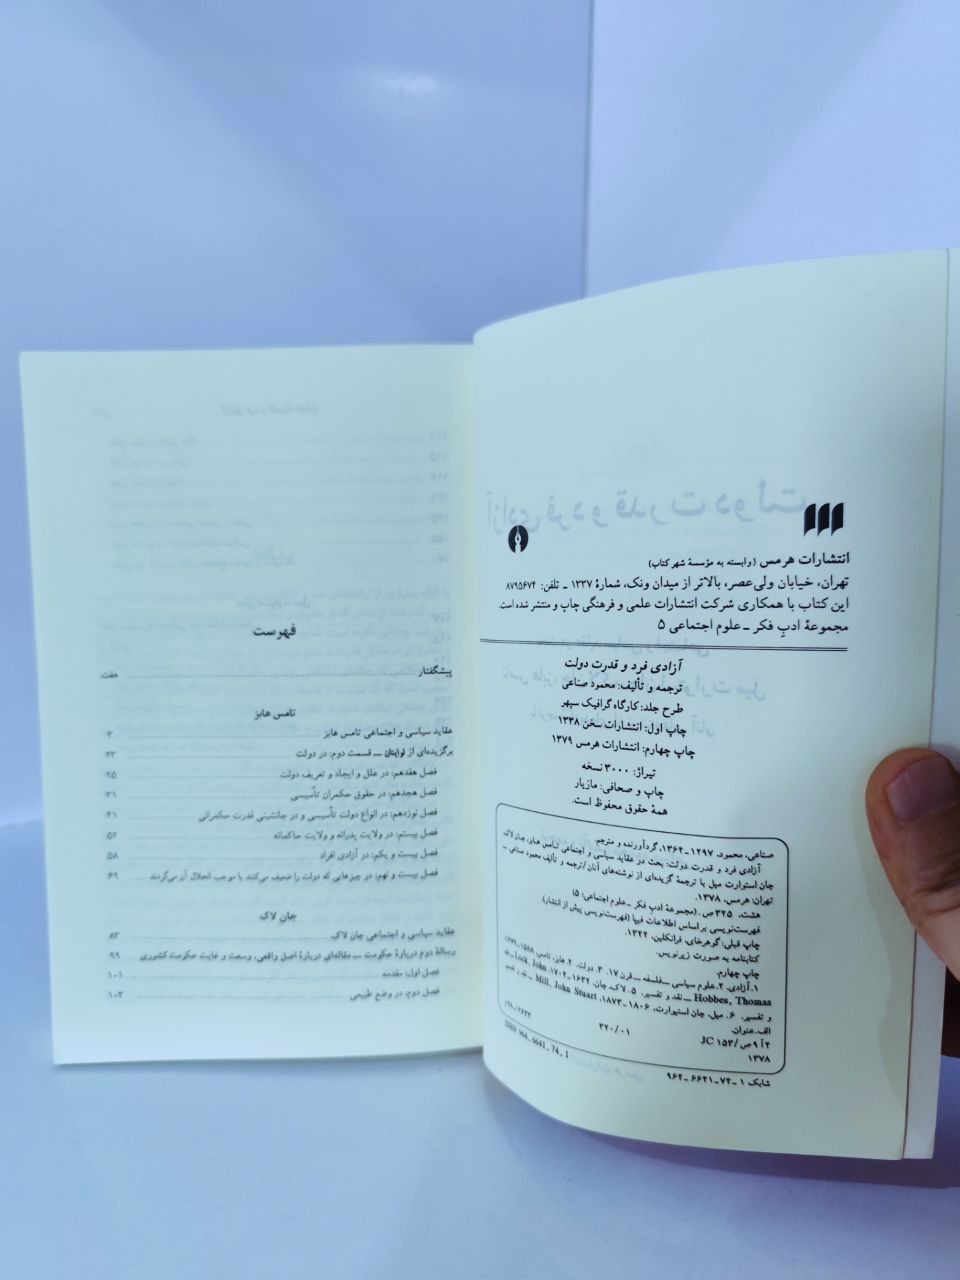 انتشارات هرمس (وابسته به مؤسسهٔ شهر کتاب)
تهران، خیابان ولی‌عصر، بالاتر از میدان ونک، شمارهٔ ۱۳۳۷ ـ تلفن: ۸۷۹۵۶۷۴
این کتاب با همکاری شرکت انتشارات علمی و فرهنگی چاپ و منتشر شده است.
مجموعهٔ ادب فکر ـ علوم اجتماعی ۵
آزادی فرد و قدرت دولت
ترجمه و تألیف: محمود صناعی
طرح جلد: کارگاه گرافیک سپهر
چاپ اول: انتشارات سخن ۱۳۳۸
چاپ چهارم: انتشارات هرمس ۱۳۷۹
تیراژ: ۳۰۰۰ نسخه
چاپ و صحافی: مازیار
همهٔ حقوق محفوظ است.
صناعی، محمود، ۱۲۹۷ـ۱۳۶۴، گردآورنده و مترجم
آزادی فرد و قدرت دولت: بحث در عقاید سیاسی و اجتماعی تامس هابز، جان لاک،
جان استوارت میل با ترجمهٔ گزیده‌ای از نوشته‌های آنان / ترجمه و تألیف محمود صناعی. ـ
تهران: هرمس، ۱۳۷۸.
هشت، ۳۲۵ ص. (مجموعهٔ ادب فکر ـ علوم اجتماعی؛ ۵)
فهرست‌نویسی بر اساس اطلاعات فیپا (فهرست‌نویسی پیش از انتشار).
چاپ قبلی: گوهرخای، فرانکلین، ۱۳۴۴.
کتابنامه به صورت زیرنویس.
چاپ چهارم.
۱. آزادی. ۲. علوم سیاسی ـ فلسفه ـ قرن ۱۷. ۳. دولت. ۴. هابز، تامس، ۱۵۸۸ـ۱۶۷۹
Hobbes, Thomas ـ نقد و تفسیر. ۵. لاک، جان، ۱۶۳۲ـ۱۷۰۴. Lock, John ـ نقد
و تفسیر. ۶. میل، جان استیوارت، ۱۸۰۶ـ۱۸۷۳. Mill, John Stuart ـ نقد و تفسیر
الف. عنوان.
۴آ۹ص/ JC ۱۵۳
۳۲۰/۰۱
۱۳۷۸
شابک ۱ـ۷۴ـ۶۶۴۱ـ۹۶۴
ISBN 964_6641_74_1
فهرست
پیشگفتار هفت
تامس هابز
عقاید سیاسی و اجتماعی تامس هابز ۳
برگزیده‌ای از لوایتان ـ قسمت دوم: در دولت ۲۳
فصل هفدهم: در علل و ایجاد و تعریف دولت ۲۵
فصل هجدهم: در حقوق حکمران تأسیسی ۳۱
فصل نوزدهم: در انواع دولت تأسیسی و در جانشینی قدرت حکمرانی ۴۱
فصل بیستم: در ولایت پدرانه و ولایت حاکمانه ۵۲
فصل بیست و یکم: در آزادی افراد ۵۸
فصل بیست و نهم: در چیزهایی که دولت را ضعیف می‌کنند یا موجب انحلال آن می‌گردند ۶۹
جان لاک
عقاید سیاسی و اجتماعی جان لاک ۸۳
رسالهٔ دوم دربارهٔ حکومت ـ مقاله‌ای دربارهٔ اصل واقعی، وسعت و غایت حکومت کشوری ۹۹
فصل اول: مقدمه ۱۰۱
فصل دوم: در وضع طبیعی ۱۰۳